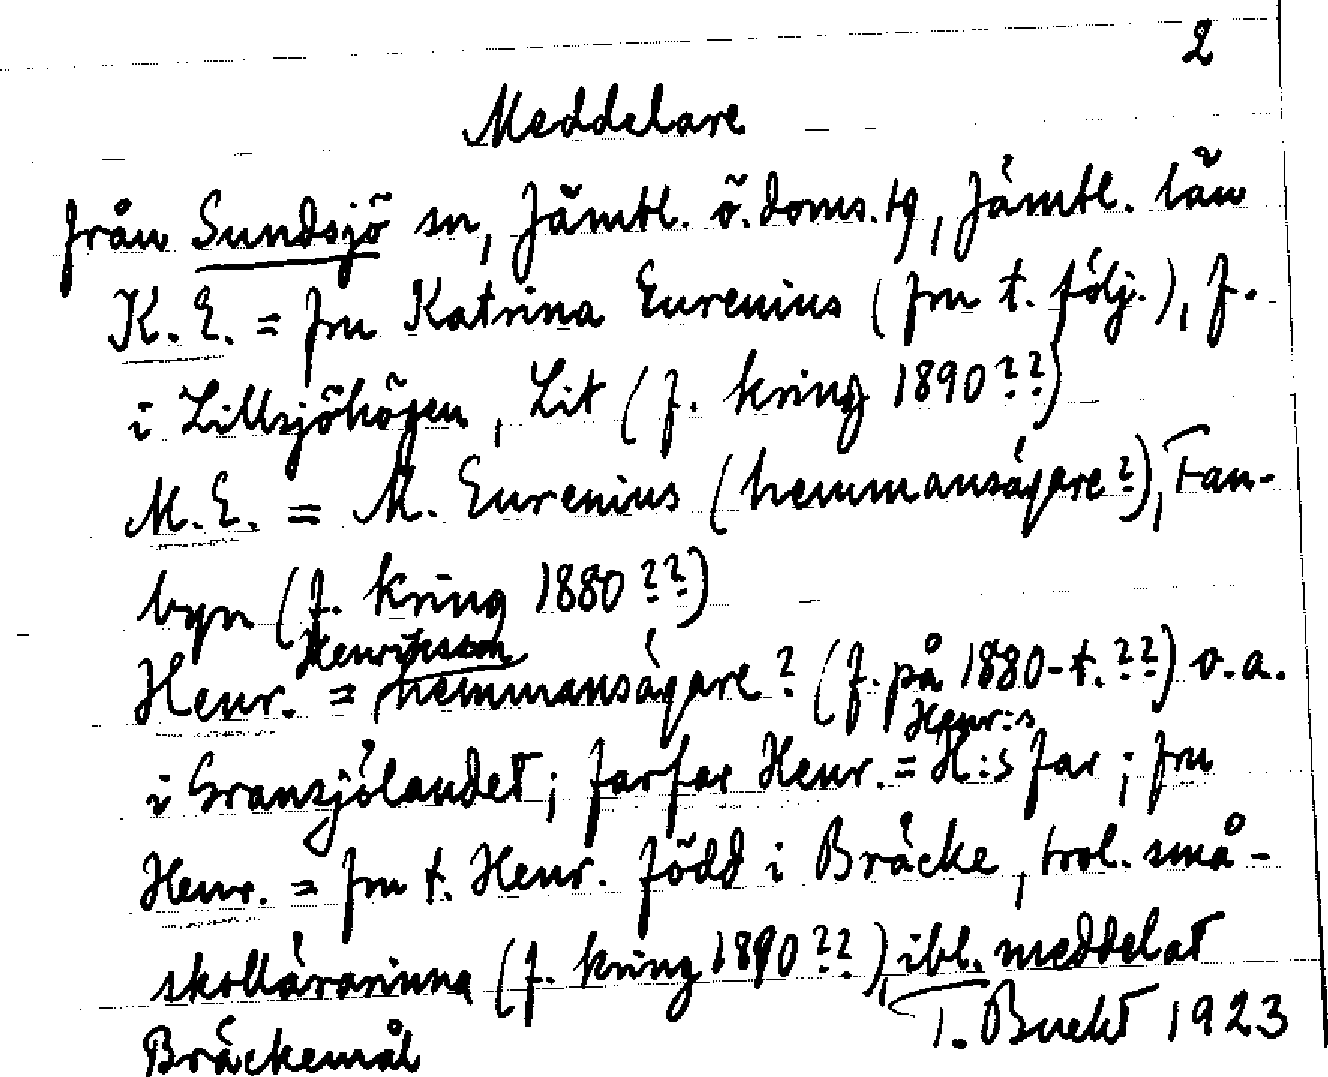 2
Meddelare
från Sundsjö sn, Jämtl. ö. doms. tg, Jämtl. län
K. E. = fru Katrina Eurenius (fru t. följ.), f.
i Lillsjöhögen, Lit (f. kring 1890??)
M. E. = M. Eurenius (hemmansägare?), Fan-
byn (f. kring 1880??)
Henriksson
Henr. = hemmansägare? (f. på 1880-t.??) o. a.
Henr:s
i Gransjölandet; farfar Henr. = H:s far; fru
Henr. = fru t. Henr. född i Bräcke, trol. små-
skollärarinna (f. kring 1890??), ibl. meddelat
Bräckemål T. Bucht 1923